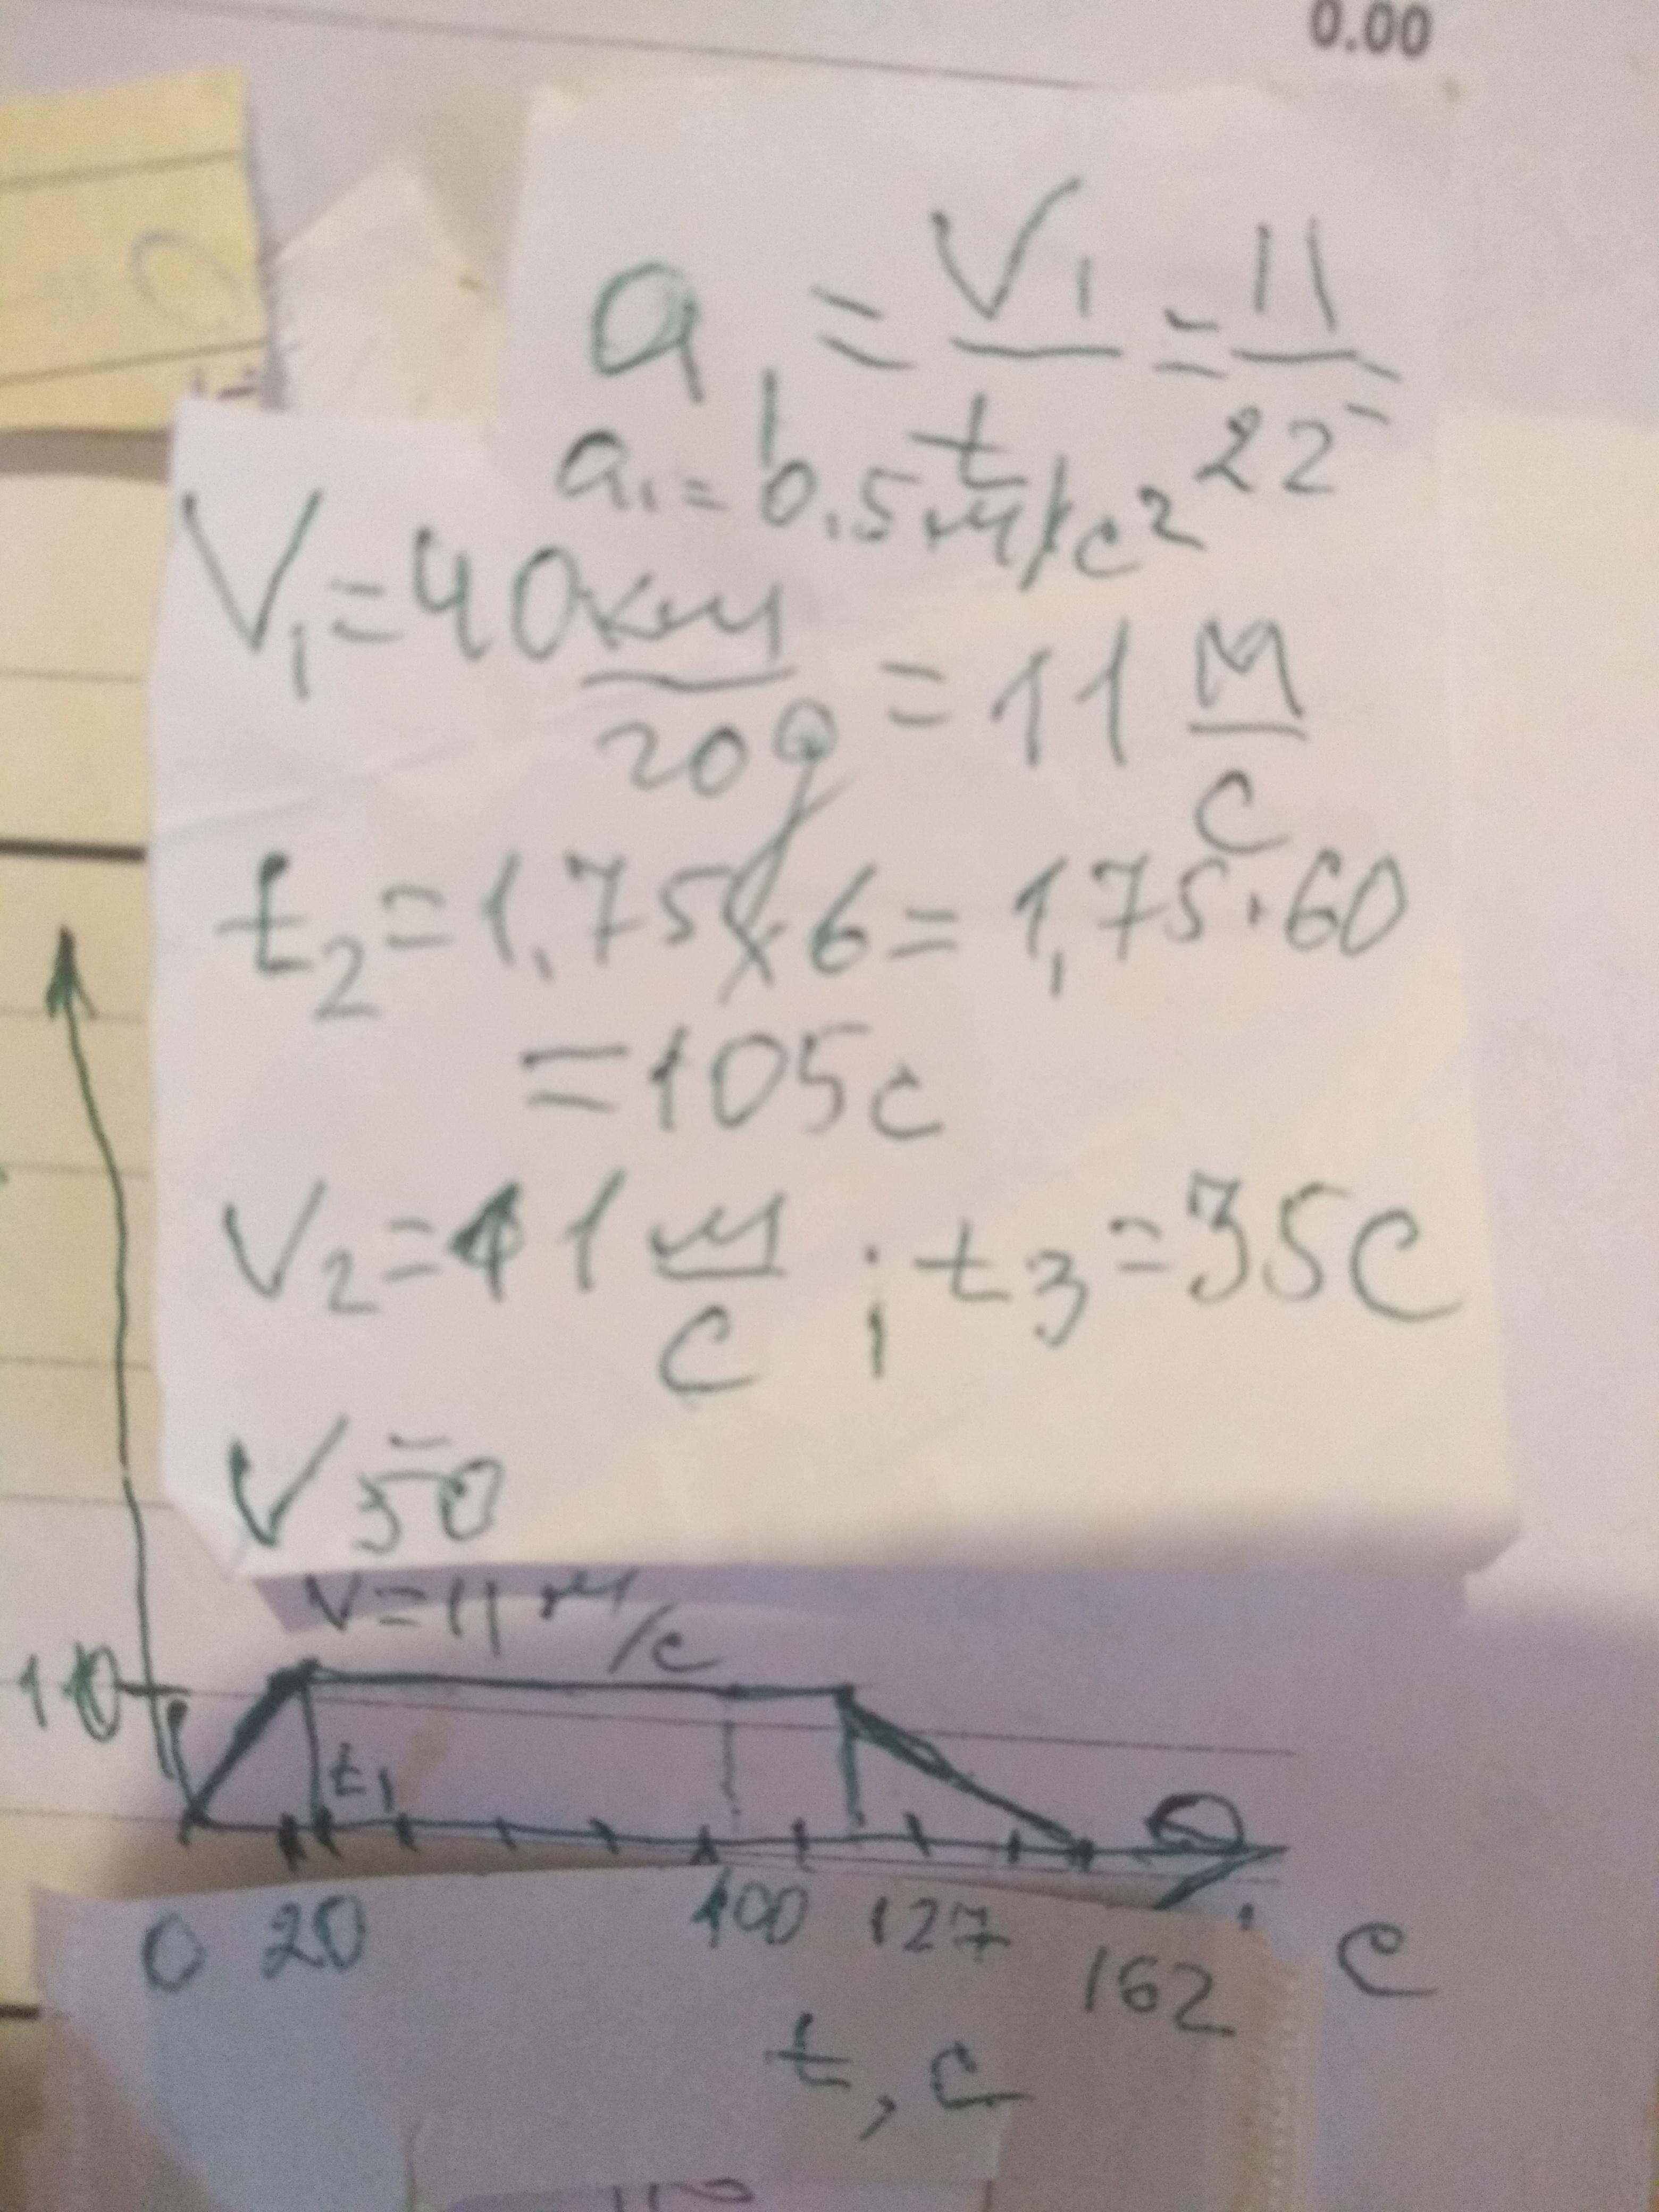 0.00
a₁ = V₁/t = 11/22
a₁ = 0.5 м/с²
V₁ = 40 км/ = 11 м/с
t₂ = 1,75 6 = 1,75 · 60
= 105 с
V₂ = 11 м/с ; t₃ = 35 с
V
V = 11 м/с
t₁
0 20 100 127 162 с
t, с